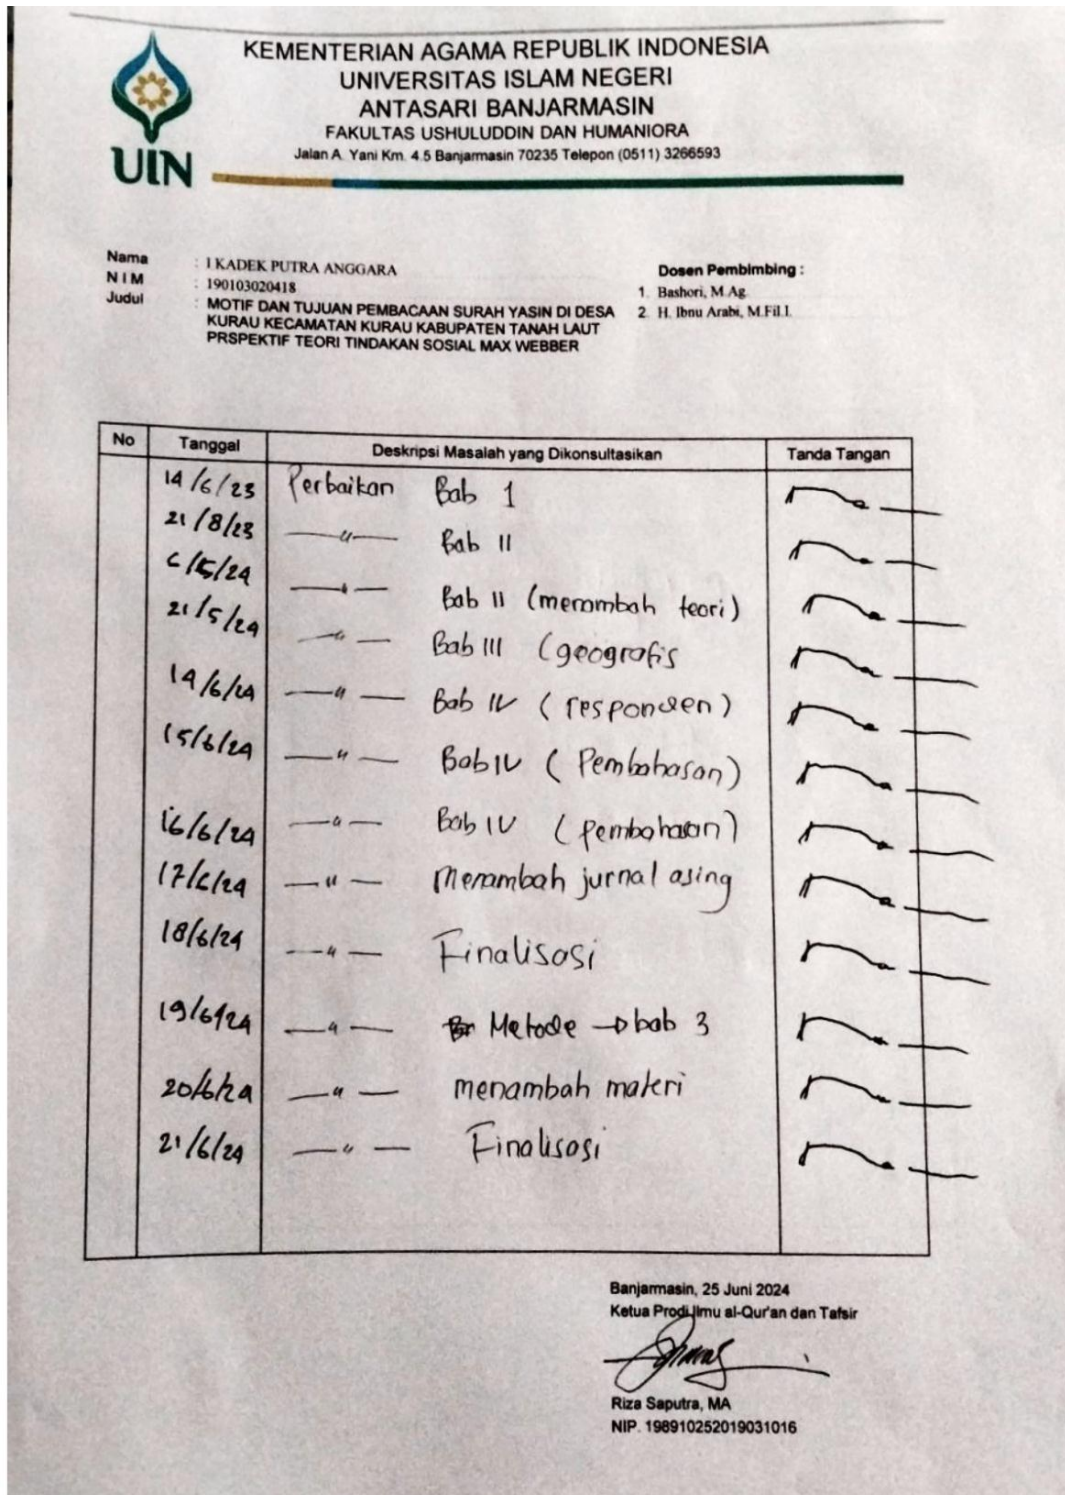 KEMENTERIAN AGAMA REPUBLIK INDONESIA
UNIVERSITAS ISLAM NEGERI
ANTASARI BANJARMASIN
FAKULTAS USHULUDDIN DAN HUMANIORA
Jalan A. Yani Km. 4.5 Banjarmasin 70235 Telepon (0511) 3266593
UIN
Nama : I KADEK PUTRA ANGGARA
N I M : 190103020418
Judul : MOTIF DAN TUJUAN PEMBACAAN SURAH YASIN DI DESA
KURAU KECAMATAN KURAU KABUPATEN TANAH LAUT
PRSPEKTIF TEORI TINDAKAN SOSIAL MAX WEBBER
Dosen Pembimbing :
1. Bashori, M.Ag.
2. H. Ibnu Arabi, M.Fil.I.
No Tanggal Deskripsi Masalah yang Dikonsultasikan Tanda Tangan
14/6/23 Perbaikan Bab 1
21/8/23 —"— Bab II
6/5/24 —"— Bab II (menambah teori)
21/5/24 —"— Bab III (geografis
14/6/24 —"— Bab IV (responden)
15/6/24 —"— Bab IV (Pembahasan)
16/6/24 —"— Bab IV (pembahasan)
17/6/24 —"— Menambah jurnal asing
18/6/24 —"— Finalisasi
19/6/24 —"— Metode → bab 3
20/6/24 —"— menambah materi
21/6/24 —"— Finalisasi
Banjarmasin, 25 Juni 2024
Ketua Prodi Ilmu al-Qur'an dan Tafsir
Riza Saputra, MA
NIP. 198910252019031016